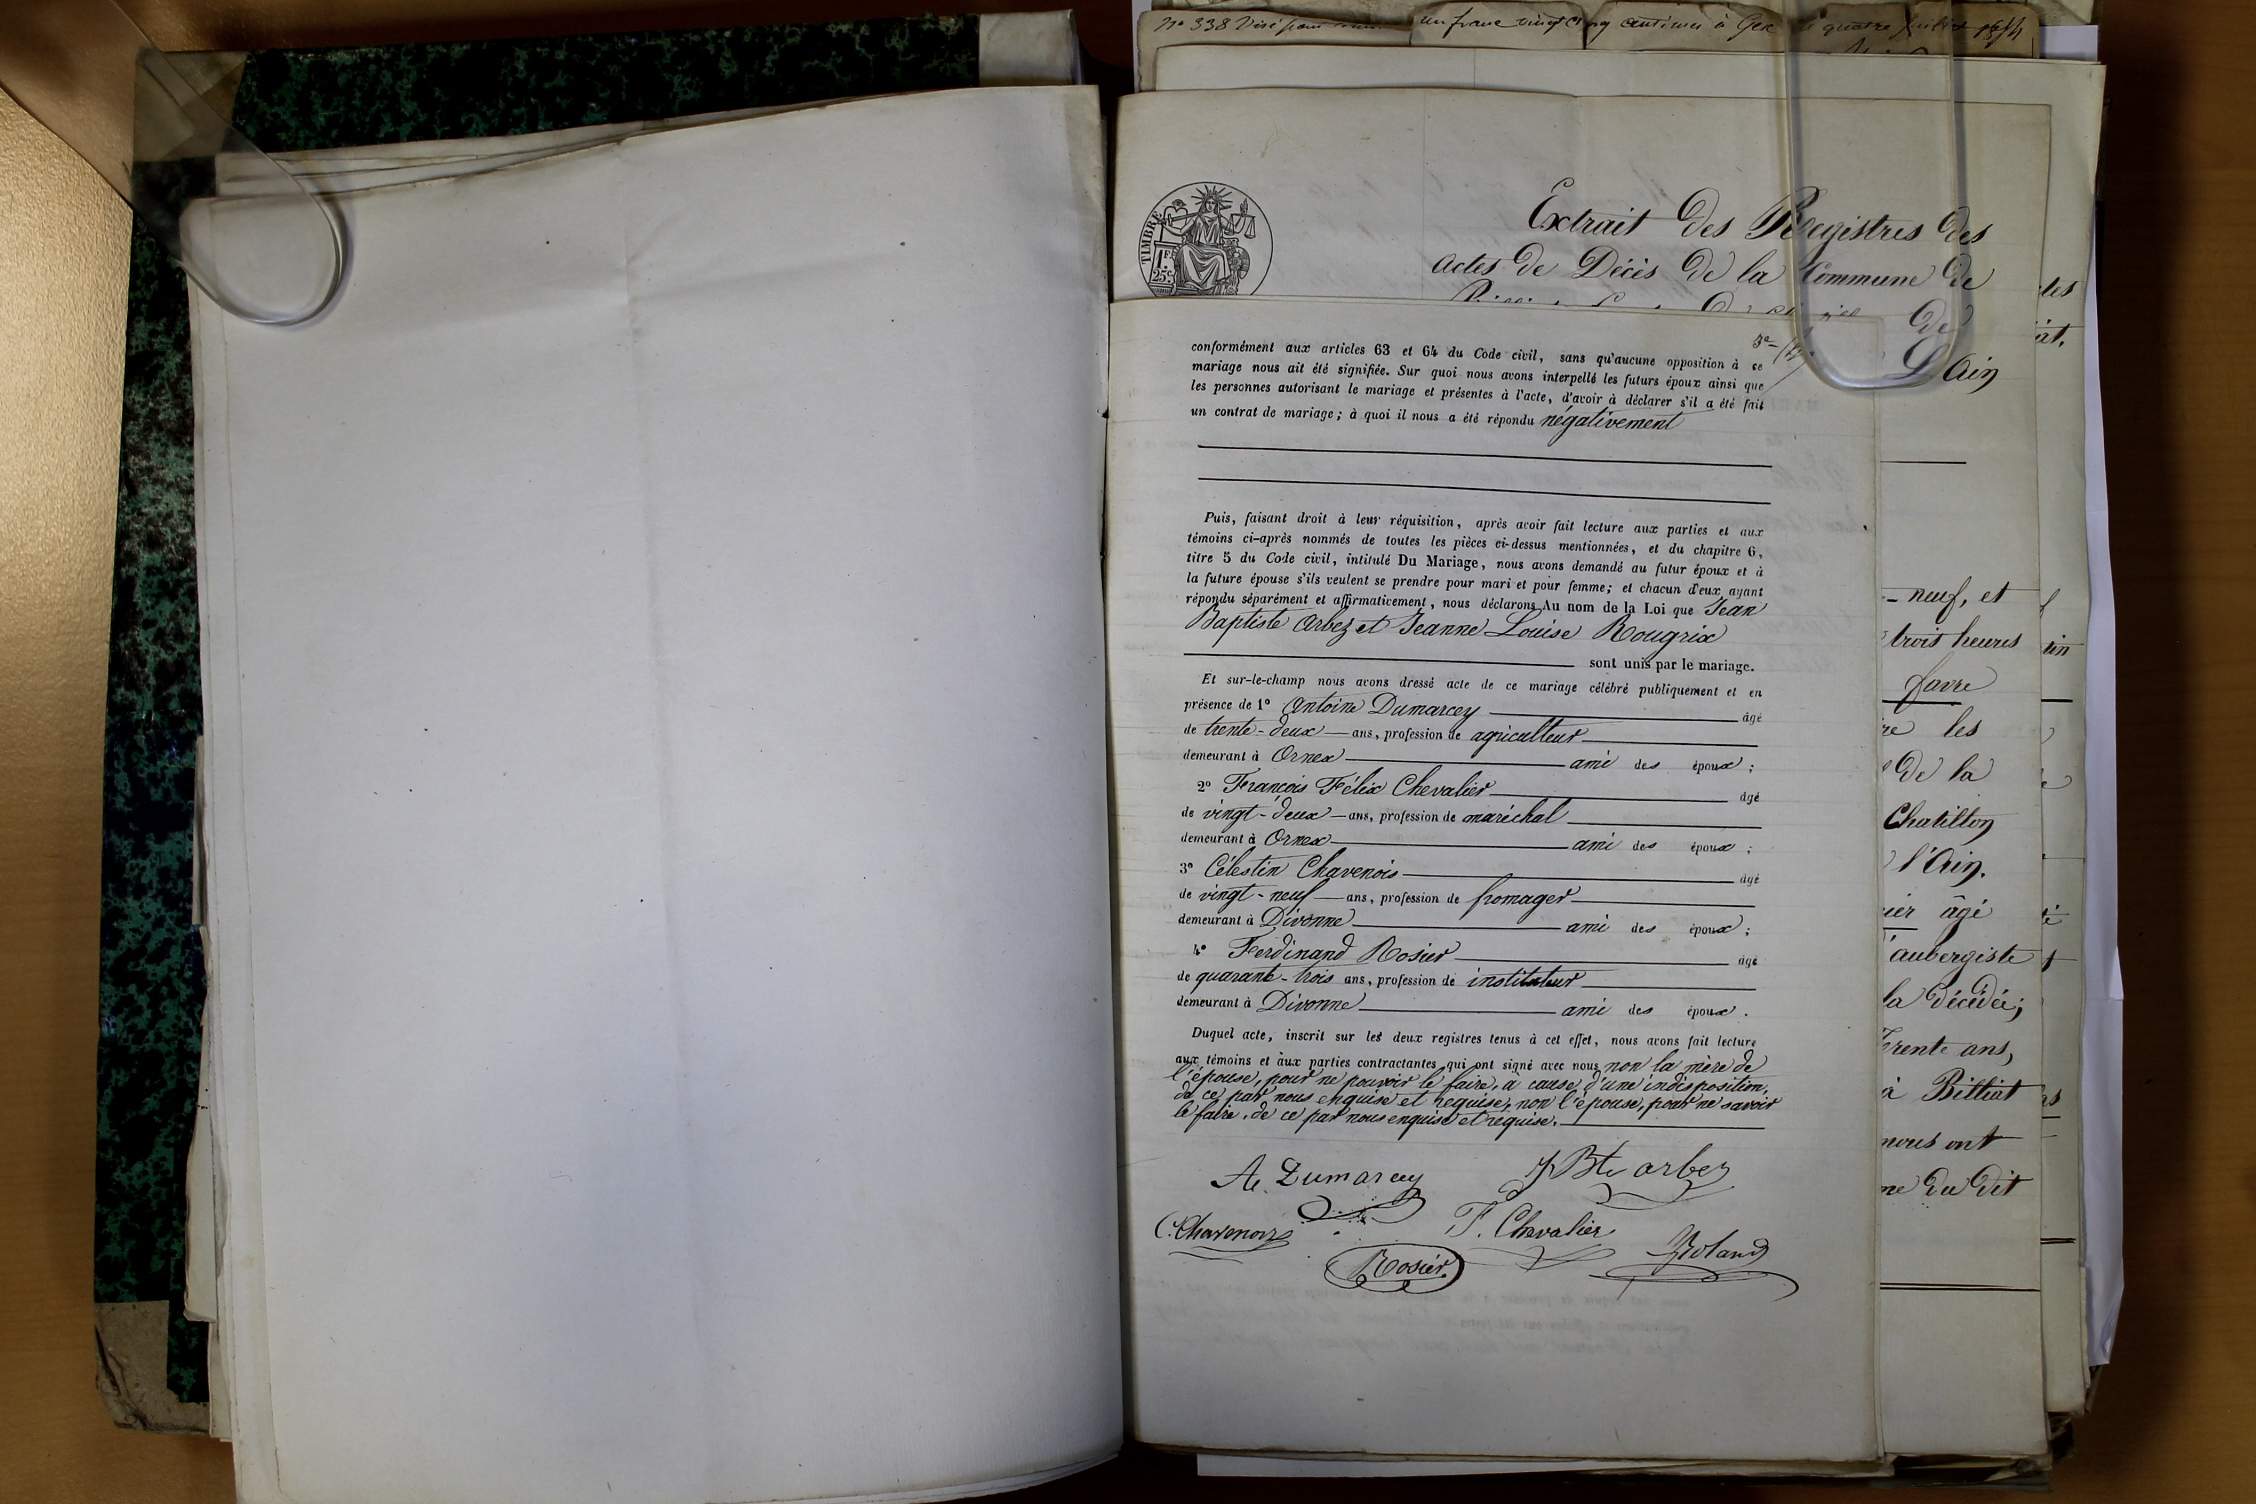 N° 338 Visé pour un franc vingt cinq centimes à Gex le quatre juillet
TIMBRE
1 F.
25 C.
Extrait des Registres des
actes de Décès de la Commune de
de
L'Ain
conformément aux articles 63 et 64 du Code civil, sans qu'aucune opposition à ce
mariage nous ait été signifiée. Sur quoi nous avons interpellé les futurs époux ainsi que
les personnes autorisant le mariage et présentes à l'acte, d'avoir à déclarer s'il a été fait
un contrat de mariage; à quoi il nous a été répondu négativement
Puis, faisant droit à leur réquisition, après avoir fait lecture aux parties et aux
témoins ci-après nommés de toutes les pièces ci-dessus mentionnées, et du chapitre 6,
titre 5 du Code civil, intitulé Du Mariage, nous avons demandé au futur époux et à
la future épouse s'ils veulent se prendre pour mari et pour femme; et chacun d'eux ayant
répondu séparément et affirmativement, nous déclarons Au nom de la Loi que Jean
Baptiste Arbez et Jeanne Louise Rougrix
sont unis par le mariage.
Et sur-le-champ nous avons dressé acte de ce mariage célébré publiquement et en
présence de 1° Antoine Dumarcey âgé
de trente-deux ans, profession de agriculteur
demeurant à Ornex ami des époux ;
2° François Félix Chevalier âgé
de vingt-deux ans, profession de maréchal
demeurant à Ornex ami des époux ;
3° Célestin Chavenois âgé
de vingt-neuf ans, profession de fromager
demeurant à Divonne ami des époux ;
4° Ferdinand Rosier âgé
de quarante-trois ans, profession de instituteur
demeurant à Divonne ami des époux .
Duquel acte, inscrit sur les deux registres tenus à cet effet, nous avons fait lecture
aux témoins et aux parties contractantes qui ont signé avec nous non la mère de
l'épouse, pour ne pouvoir le faire, à cause d'une indisposition,
de ce par nous enquise et requise, non l'épouse, pour ne savoir
le faire, de ce par nous enquise et requise.
A. Dumarcey
J Bte arbez
C. Chavenois
F. Chevalier
Rosier
Roland
neuf, et
trois heures
favre
les
de la
Chatillon
l'Ain.
âgé
aubergiste
la décédée;
trente ans,
à Billiat
nous ont
du dit